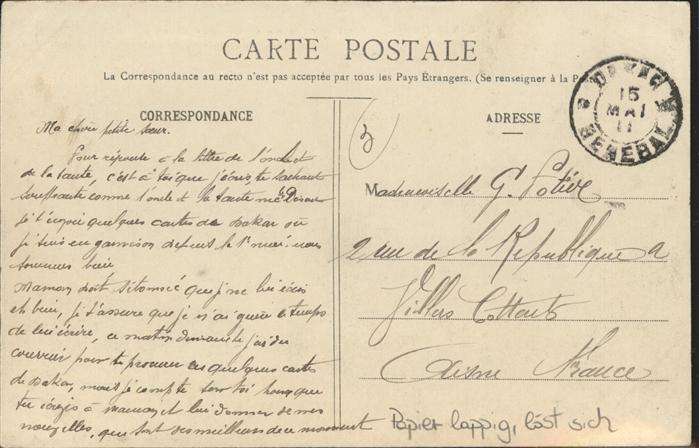 CARTE POSTALE
La Correspondance au recto n'est pas acceptée par tous les Pays Étrangers. (Se renseigner à la
CORRESPONDANCE
ADRESSE
DAKAR
15
MAI
11
SENEGAL
3
Ma chère petite sœur.
Pour réponse à la lettre de l'oncle et
de la tante, c'est à toi que j'écris te sachant
souffrante comme l'oncle et la tante me
je t'envoie quelques cartes de Dakar où
je suis en garnison depuis le 1er
bien
Maman doit
et bien, je t'assure que je n'ai guère le temps
de lui écrire, ce matin
courrier pour te procurer ces quelques cartes
de Dakar, mais je compte sur toi pour que
tu écrives à maman et lui donner de mes
nouvelles, qui sont des meilleures en ce moment
Mademoiselle G.
2 rue de la République 2
Villers Cotterets
Aisne France
Papier lappig, löst sich